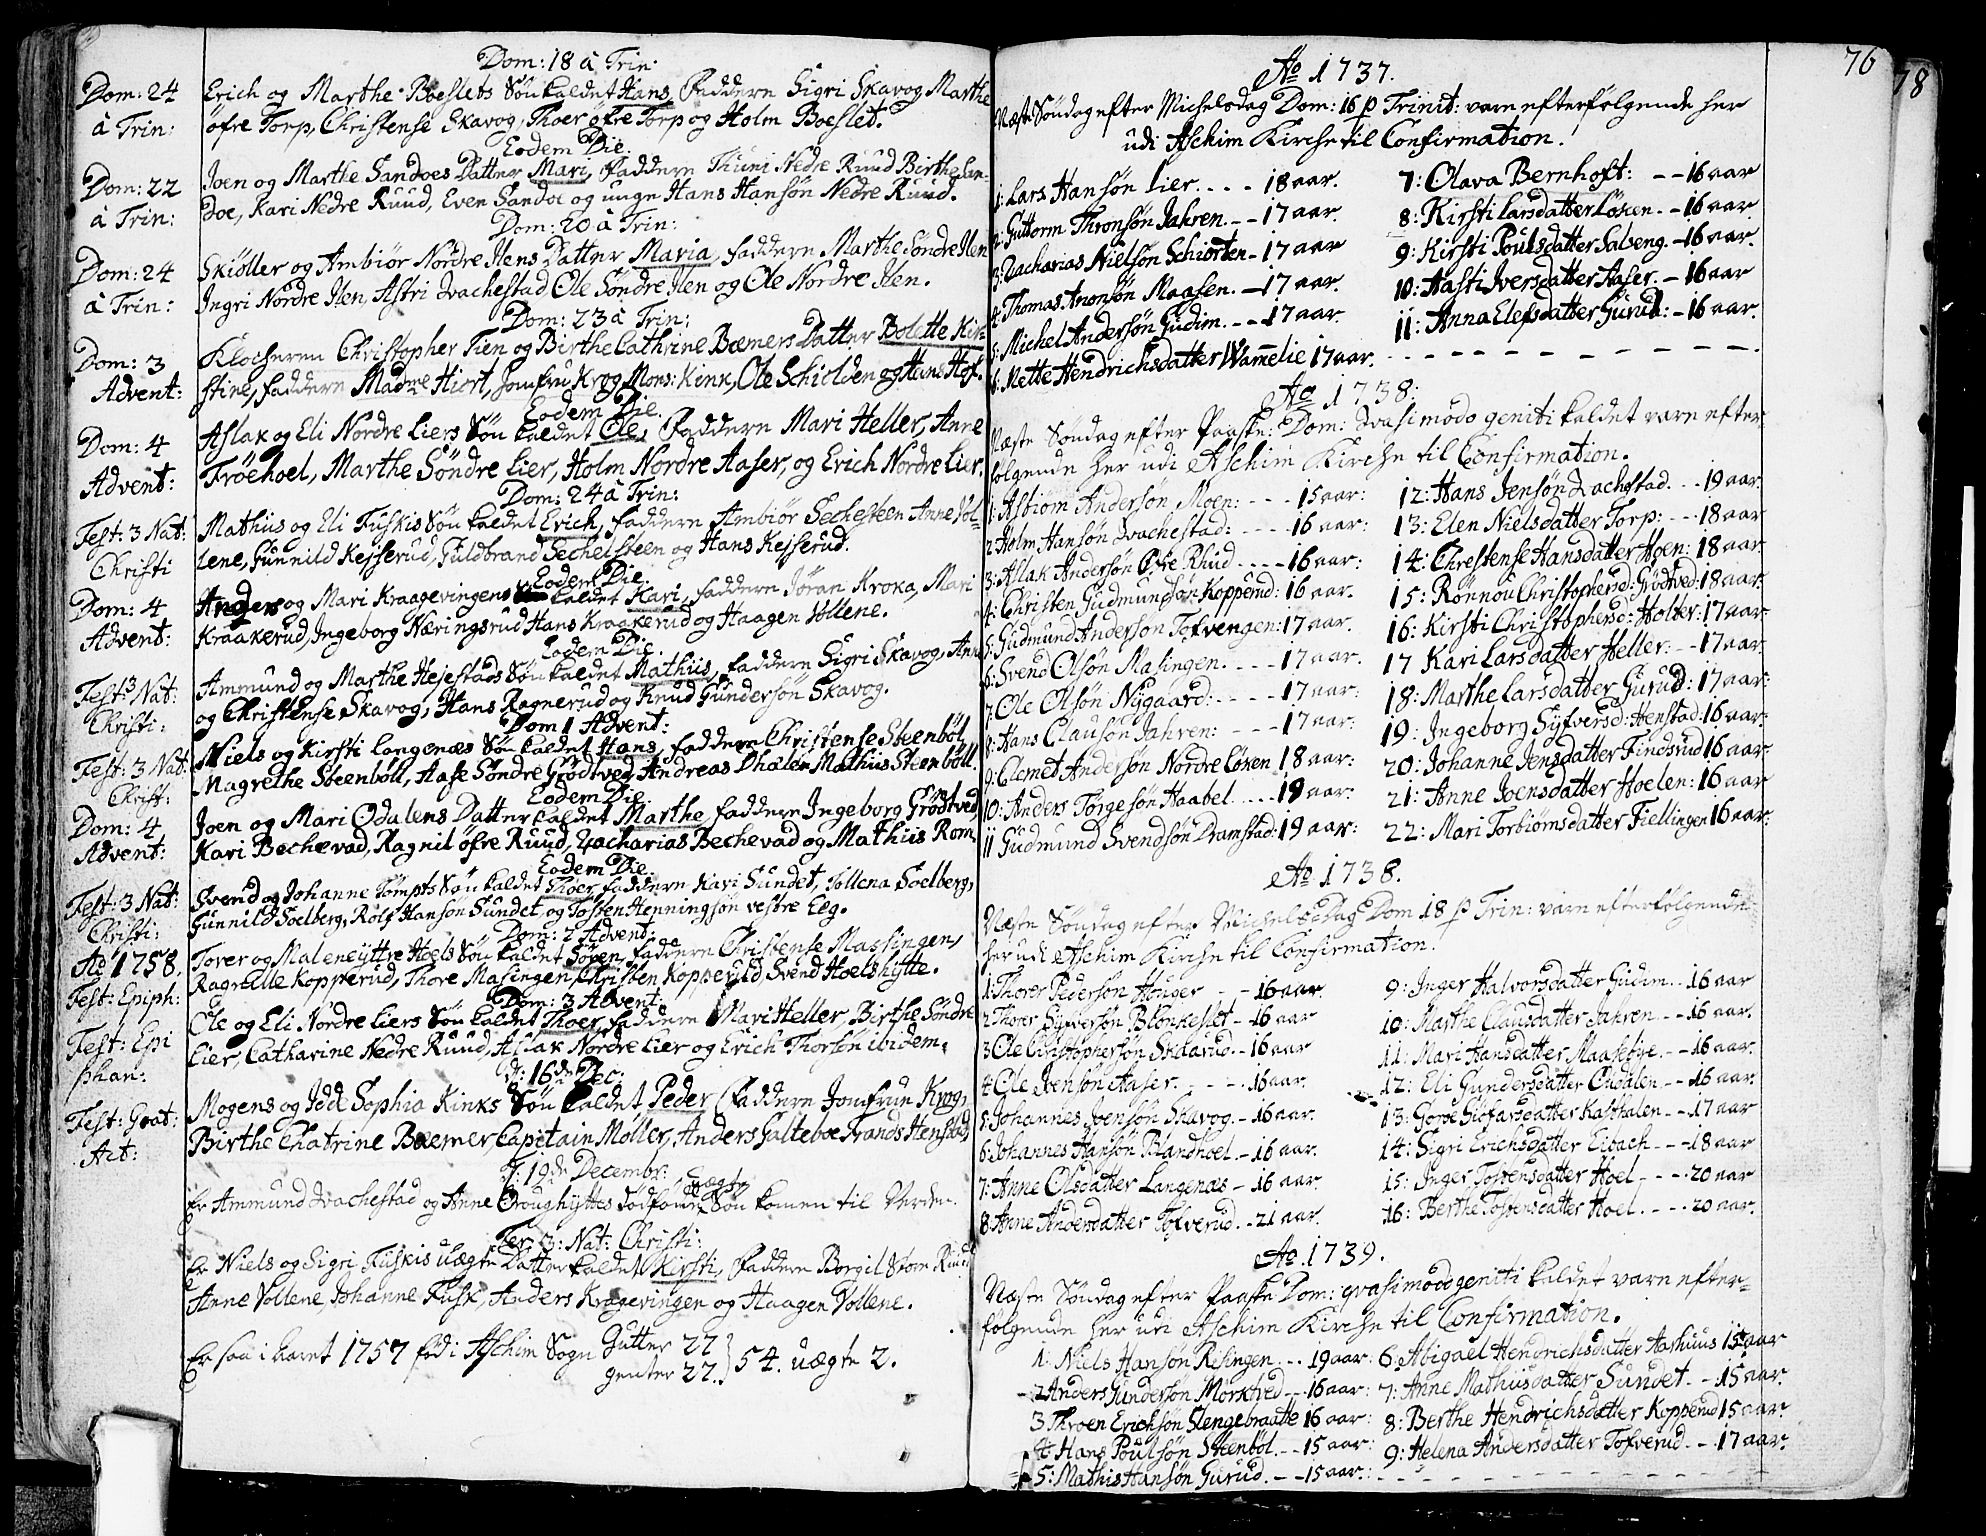 Dom: 18 à Trin:
Dom: 24 à Trin:
Erich og Marthe Boeslets Søn kaldet Hans, Faddere Sigri Skavog Marthe
øfre Torp, Christense Skavog, Thoer øfre Torp og Holm Boeslet.
Eodem Die.
Dom: 22 à Trin:
Joen og Marthe Sandoes Datter Mari, Faddere Thuni Nedre Ruud Birthe San-
doe, Kari Nedre Ruud, Even Sandoe og unge Hans Hansøn Nedre Ruud.
Dom: 20 à Trin:
Dom: 24 à Trin:
Skiøller og Ambiør Nordre Ilens Datter Maria, faddere Marthe Søndre Ilen
Ingri Nordre Ilen, Astri Ovachestad Ole Søndre Ilen og Ole Nordre Ilen.
Dom: 23 à Trin:
Dom: 3 Advent:
Klocheren Christopher Fien og Birthe Cathrine Bæmers Datter Bolette Kir-
stine, faddere Madme Hiort, Jomfru Krog Mons: Kink, Ole Schiolden og Hans Hof.
Eodem Die.
Dom: 4 Advent:
Aslak og Eli Nordre Liers Søn kaldet Ole, Faddere Mari Heller, Anne
Frøehoel, Marthe Søndre Lier, Holm Nordre Aaser, og Erich Nordre Lier.
Dom: 24 à Trin:
Fest: 3 Nat: Christi
Mathius og Eli Fuskis Søn kaldet Erich, faddere Ambiør Sechesteen Anne Vol-
lene, Gunnild Kejserud, Guldbrand Sechelsteen og Hans Kejserud.
Eodem Die.
Dom: 4 Advent:
Anders og Mari Kraagevingens kaldet Kari, faddere Jøran Kroka, Mari
Kraakerud, Ingeborg Næringsrud Hans Kraakerud og Haagen Vollene.
Eodem Die.
Fest: 3 Nat: Christi:
Ammund og Marthe Hejestads Søn kaldet Mathius, faddere Sigri Skavog, Ann
og Christense Skavog, Hans Ragnerud og Knud Gundersøn Skavog.
Dom 1 Advent:
Fest: 3 Nat: Christ:
Niels og Kirsti Langenæs Søn kaldet Hans, faddere Christense Steenbøl,
Magrethe Steenbøll, Aase Søndre Grødtved Andreas Dhalen Mathius Steenbøll.
Eodem Die.
Dom: 4 Advent:
Joen og Mari Odalens Datter kaldet Marthe, faddere Ingeborg Grødtved,
Kari Bechevad, Ragnil øfre Ruud, Zacharias Bechevad og Mathius Rom.
Eodem Die.
Fest: 3 Nat: Christi:
Svend og Johanne Tømpts Søn kaldet Thoer, faddere Kari Sundet, Tollena Soelberg,
Gunnild Soelberg, Rolf Hansøn Sundet, og Tosten Henningsøn vestre Eeg.
Dom: 2 Advent:
Ao 1758. Fest: Epiph:
Torer og Malene yttre Hoels Søn kaldet Søren, faddere Christense Massingen,
Ragnelle Kopperud, Thore Masingen, Christen Kopperud, Svend Hoelshytte.
Dom: 3 Advent:
Fest: Epi phan:
Ole og Eli Nordre Liers Søn kaldet Thoer, faddere Mari Heller, Birthe Søndre
Lier, Catharine Nedre Ruud, Aslak Nordre Lier og Erich Thorsøn ibidem.
d: 16de Dec:
Fest: Grat: Act:
Mogens og Idde Sophia Kinks Søn kaldet Peder, Faddere Jomfrue Krog,
Birthe Chatrine Bæmer, Capitain Møller, Anders Galteboe Frands Henstad,
d: 19de Decembr:
Er Ammund Ovachestad og Anne Troughyttes dødføde uægte Søn komen til Verden.
Fer 3: Nat: Christi:
Er Niels og Sigri Fuskis uægte Datter kaldet Kirsti, Faddere Borgil Stom Ruud
Anne Vollene Johanne Fusk, Anders Kragevingen og Haagen Vollene.
Er saa i Aaret 1757 fød i Aschim Sogn Gutter 27
genter 27. } 54. uægte 2.
76
78
Ao 1737.
Næste Søndag efter Michelsdag Dom: 16 p Trinit: vare efterfølgende her
udi Aschim Kirche til Confirmation.
1: Lars Hansøn Lier.... 18 aar.
2: Guttorm Thronsøn Jahren.-- 17 aar.
3: Zacharias Nielsøn Schiorten- 17 aar
4: Thomas Aronsøn Maasen.-- 17 aar.
5: Michel Andersøn Gudim.--- 17 aar.
6: Mette Hendrichsdatter Wammelie 17 aar.
7: Olava Bernhoft: -- 16 aar
8: Kirsti Larsdatter Løken.-- 16 aar.
9: Kirsti Poulsdatter Salveng.- 16 aar.
10: Aasti Iversdatter Aaser.-- 16 aar
11: Anna Elefsdatter Gurud:- 16 aar.
Ao 1738:
Næste Søndag efter Paaske: Dom: Qvasimodo geniti kaldet vare efter
følgende her udi Aschim Kirche til Confirmation.
1: Asbiørn Andersøn Moen:--- 15 aar:
2: Holm Hansøn Ovachestad:--- 16 aar:
3: Aslak Andersøn Øfre Rhud---- 16 aar:
4: Christen Gudmundsøn Kopperud: 16 aar.
5: Gudmund Andersøn Tofvengen: 17 aar.
6: Svend Olsøn Masingen.---- 17 aar.
7: Ole Olsøn Nygaard:---- 17 aar:
8: Hans Clausøn Jahren:--- 17 aar:
9: Clemet Andersøn Nordre Løken 18 aar:
10: Anders Torgesøn Haabel.... 19 aar:
11 Gudmund Svendsøn Dramstad: 19 aar:
12: Hans Jensøn Ovachestad.--- 19 aar.
13: Elen Nielsdatter Torp:--- 18 aar
14: Chrestense Hansdatter Moen: 18 aar.
15: Rønnou Christophersd: Grødtved: 18 aar.
16: Kirsti Christophersd: Holter: 17 aar:
17 Kari Larsdatter Heller:-- 17 aar:
18: Marthe Larsdatter Gurud: 17 aar:
19: Ingeborg Syfversd: Henstad: 16 aar:
20: Johanne Jensdatter Findsrud 16 aar:
21: Anne Joensdatter Hoelen: 16 aar
22: Mari Torbiørnsdatter Fiellingen 16 aar:
Ao 1738.
Næste Søndag efter Michels Dag Dom 18 p Trin: vare efterfølgende
her udi Aschim Kirche til Confirmation.
1: Thorer Pedersøn Houger -- 16 aar
2 Thorer Syfversøn Blonkeslet- 16 aar
3 Ole Christophersøn Skilarud.-- 16 aar
4 Ole Joensøn Aaser.---- 16 aar:
5: Johannes Joensøn Skavog- 16 aar.
6: Johannes Hansøn Blandhoel- 16 aar.
7: Anne Olsdatter Langenæs- 16 aar.
8: Anne Andersdatter Tofverud.-- 21 aar.
9: Inger Halvorsdatter Gudim.- 16 aar
10: Marthe Clausdatter Jahren.-- 16 aar.
11: Mari Hansdatter Maaseøye.-- 16 aar.
12: Eli Gundersdatter Oudalen-- 16 aar.
13: Gorse Glosarsdatter Kasthalen.-- 17 aar
14: Sigri Erichsdatter Eibach--- 18 aar
15: Inger Tostensdatter Hoel---- 20 aar
16: Berthe Tostensdatter Hoel.---- 20 aar.
Ao 1739.
Næste Søndag efter Paaske Dom: qvasimodogeniti kaldet vare efter-
følgende her udi Aschim Kirche til Confirmation.
1: Niels Hansøn Risingen... 19 aar:
2 Anders Gundersøn Mørktved-- 16 aar:
3 Throen Erichsøn Slengebraatte 16 aar:
4: Hans Poulsøn Steenbøl.-- 15 aar:
5: Mathis Hansøn Gurud.--- 15 aar.
6: Abigael Hendrichsdatter Aashuus 15 aar
7: Anne Mathiusdatter Sundet-- 15 aar.
8: Berthe Hendrichsdatter Kopperud 15 aar.
9: Helena Andersdatter Tofverud.-- 17 aar.